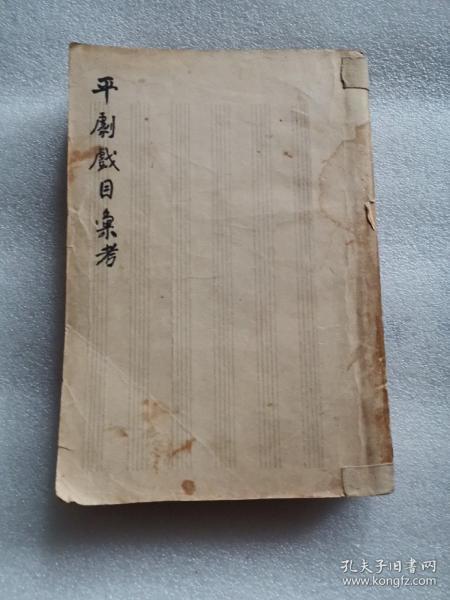 平劇戲目彙考
孔夫子旧书网
www.kongfz.com